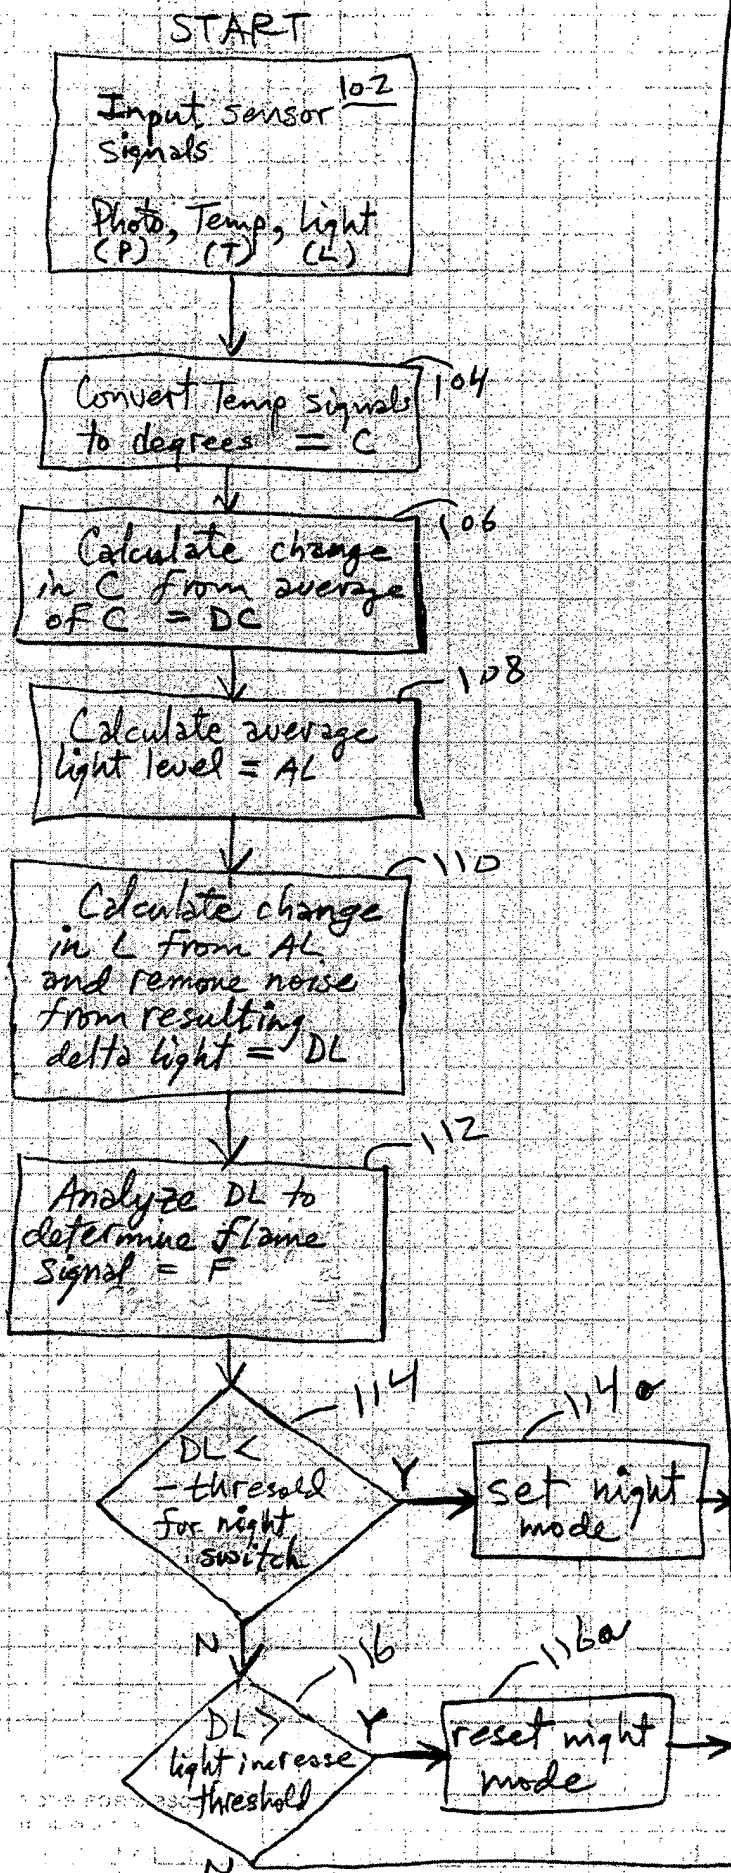 START
Input sensor 102
signals
Photo, Temp, Light
(P) (T) (L)
104
Convert Temp signals
to degrees = C
106
Calculate change
in C from average
of C = DC
108
Calculate average
light level = AL
110
Calculate change
in L from AL
and remove noise
from resulting
delta light = DL
112
Analyze DL to
determine flame
signal = F
114
DL <
- thresold
for night
switch
Y
114a
set night
mode
N
116
DL >
light increase
threshold
Y
116a
reset night
mode
N